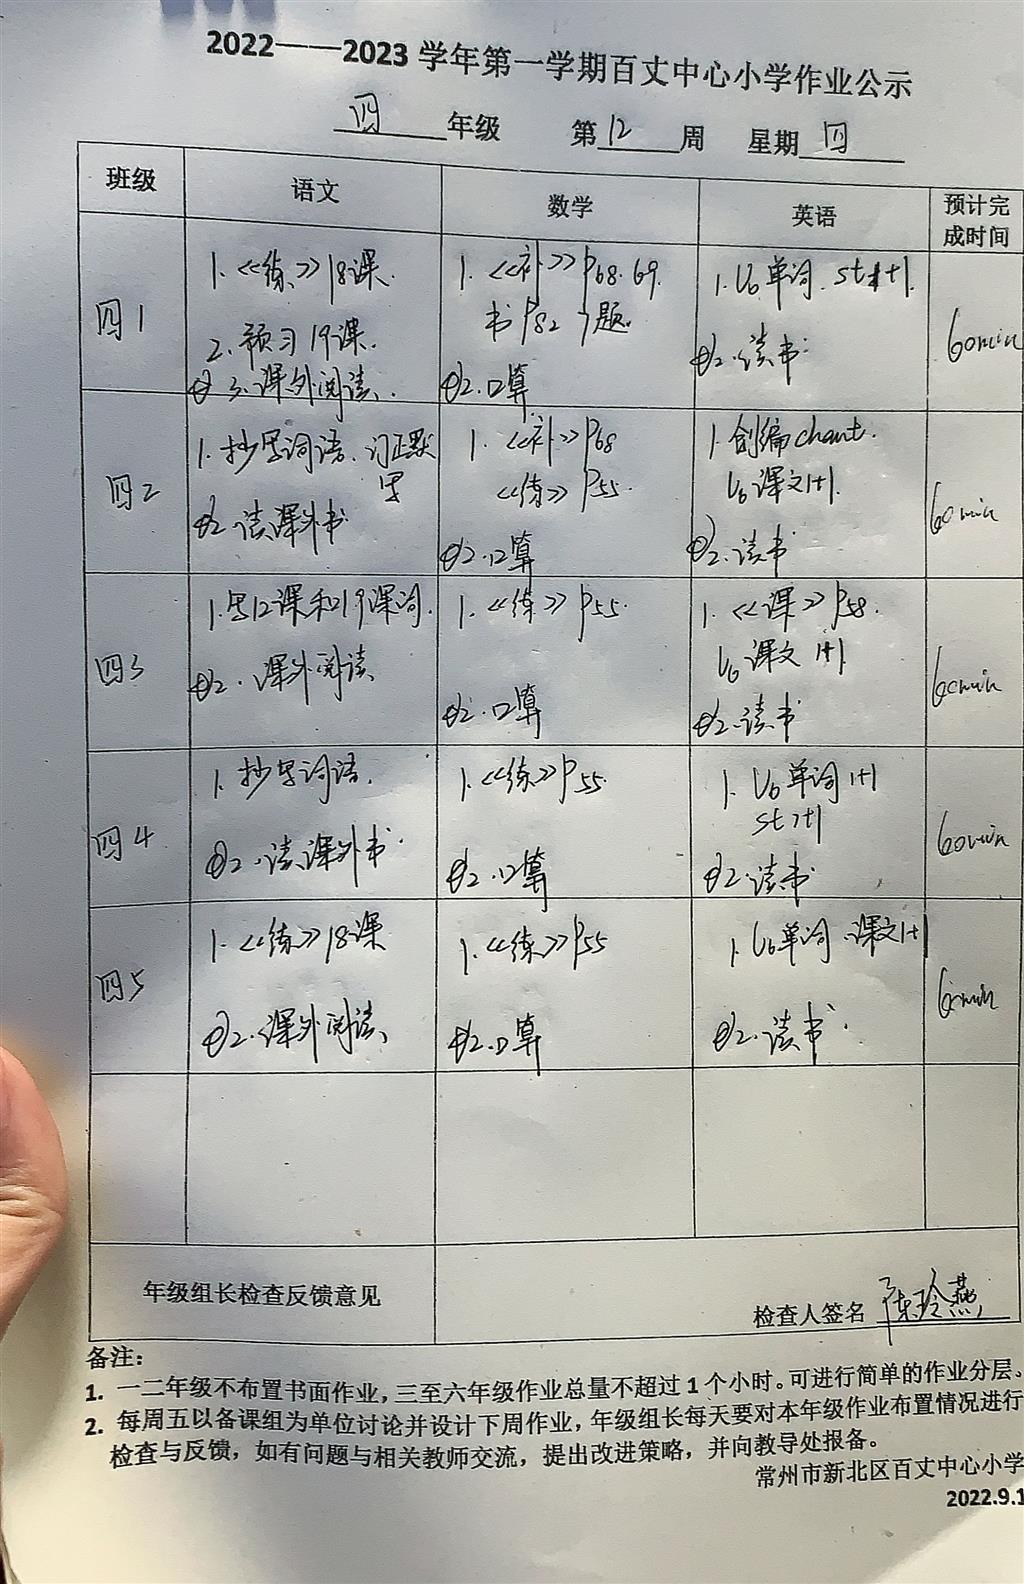 2022——2023 学年第一学期百丈中心小学作业公示
四 年级 第 12 周 星期 四
班级 语文 数学 英语 预计完成时间
四1
1.《练》18课.
2.预习19课.
3.课外阅读.
1.《补》P68.69.
书P82 7题.
2.口算
1.U6单词.
2.读书.
60min
四2
1.抄写词语.订正默写
2.读课外书
1.《补》P68
《练》P55.
2.口算
1.创编chant.
U6课文1+1.
2.读书
60min
四3
1.写12课和19课词.
2.课外阅读
1.《练》P55.
2.口算
1.《课》P58.
U6课文 1+1
2.读书
60min
四4
1.抄写词语.
2.读课外书.
1.《练》P55
2.口算
1.U6单词1+1
2.读书
60min
四5
1.《练》18课
2.课外阅读
1.《练》P55
2.口算
1.U6单词.课文1+1
2.读书.
60min
年级组长检查反馈意见
检查人签名 陈玲燕
备注：
1. 一二年级不布置书面作业，三至六年级作业总量不超过1个小时。可进行简单的作业分层。
2. 每周五以备课组为单位讨论并设计下周作业，年级组长每天要对本年级作业布置情况进行
检查与反馈，如有问题与相关教师交流，提出改进策略，并向教导处报备。
常州市新北区百丈中心小学
2022.9.1